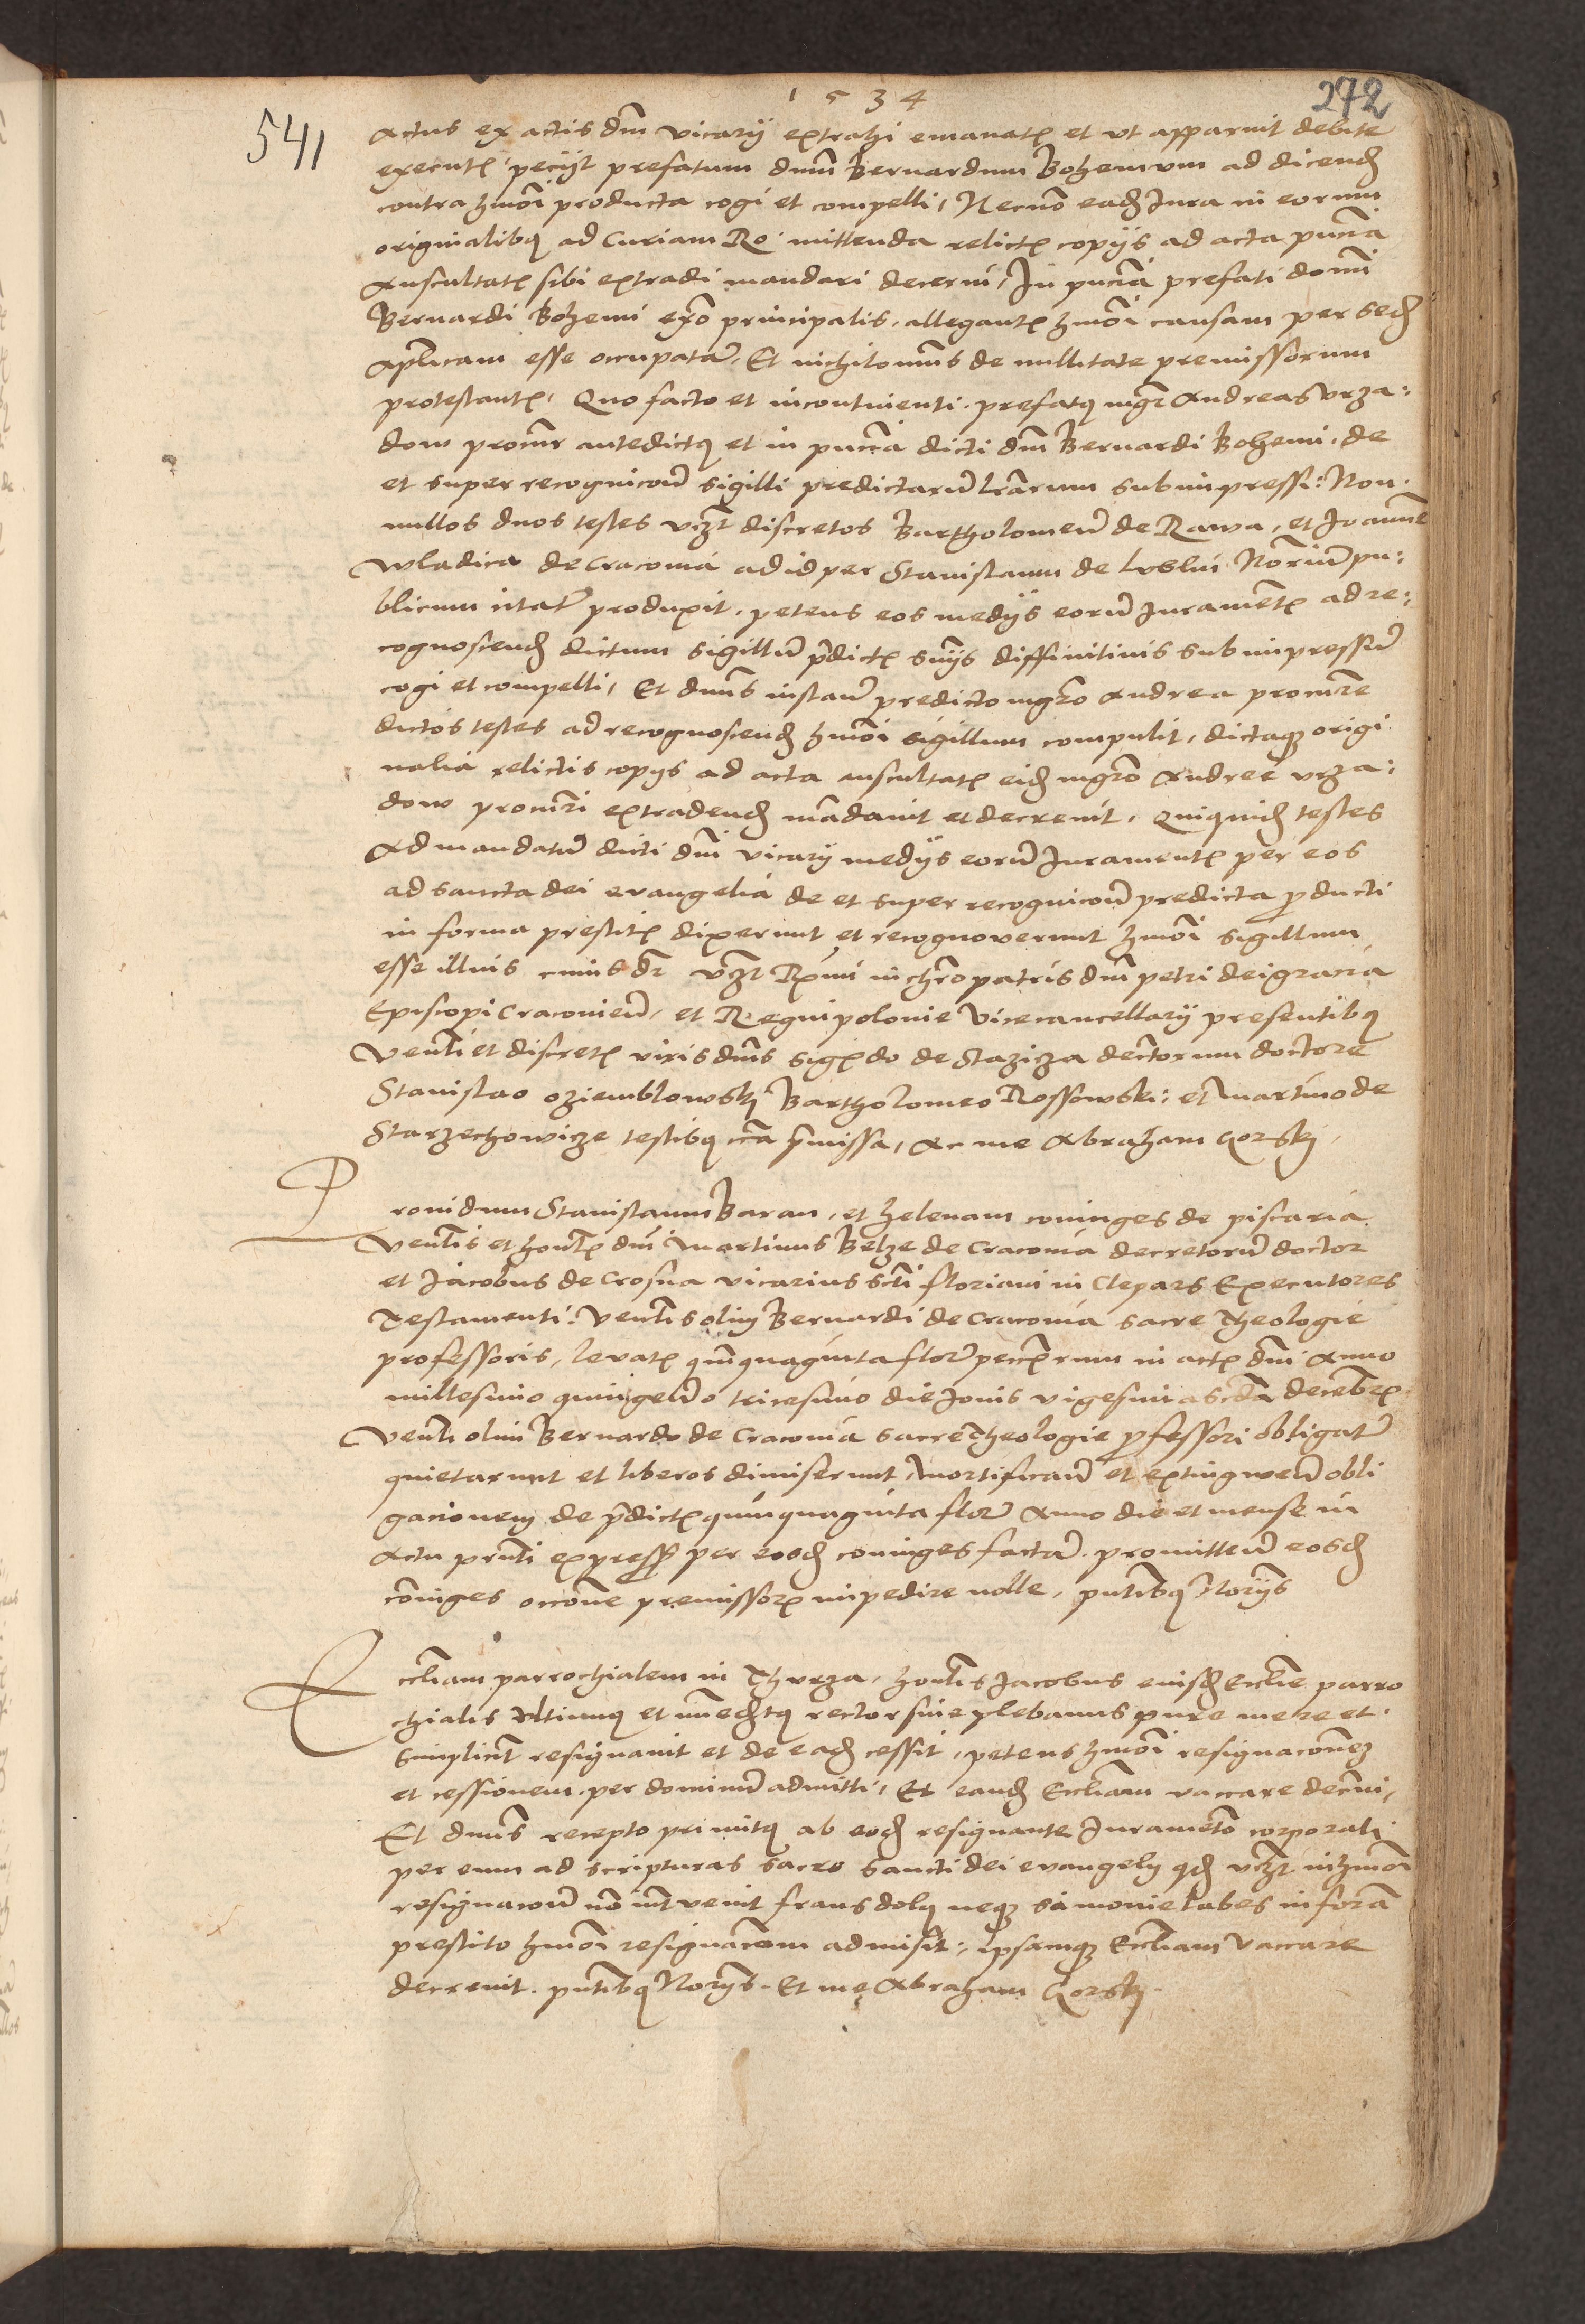 1534
272
541
Actus ex actis dni vicarii extrahi emanatꝭ et ut apparuit debite
executꝭ peciit prefatum dnm Bernardum Bohemum ad dicendꝭ
contra hmoi producta cogi et compelli, Necno eadꝭ Jura in eorum
originalibꝰ ad Curiam Ro mittenda relictꝭ copiis ad acta pncia
Auscultatꝭ sibi extradi mandari decerni, In pncia prefati domi
Bernardi Bohemi exo principalis, allegantꝭ hmoi causam per sedꝭ
aplicam esse occupatā, Et nichilominus de nullitate premissorum
protestantꝭ, Quo facto et incontinenti prefatꝰ mgr Andreas Vrza:
dow procur antedictꝰ et in pncia dicti dni Bernardi Bohemi, de
et super recognicoē sigilli predictarū lrarum subimpressi: Non
nullos duos testes vzt discretos Bartholomeū de Rawa, et Joannē
Wladica de Cracovia ad id per Stanislaum de Lublin Noriū pu:
blicum citatꝭ produxit, petens eos mediis eorū Juramētꝭ ad re:
cognoscendꝭ dictum sigillū pdictꝭ sniis diffinitivis subimpressū
cogi et compelli, Et dnus instanꝭ predicto mgro Andrea procure
dictos testes ad recognoscendꝭ hmoi sigillum compulit, dictaqꝫ origi
nalia relictis copiis ad acta auscultatꝭ eidꝭ mgro Andree Vrza:
dow procuri extradendꝭ mādavit et decrevit, Quiquidꝭ testes
Ad mandatū dicti dni vicarii mediis eorū Juramentꝭ per eos
ad sancta dei evangelia de et super recognicoē predicta pducti
in forma prestitꝭ dixerunt et recognoverunt hmoi sigillum
esse illius cuius dr vzt Rmi in chro patris dni petri dei gracia
Episcopi Cracovienꝭ et Regni polonie Vicecancellarii presentibꝰ
Venli et discretꝭ viris dnis Sigꝭdo de Stazicza dectorum doctore
Stanislao Oziemblowskꝭ Bartholomeo Rossowski: et Martino de
Starzechowicze testibꝰ cca pmissa, Ac me Abraham Gorskꝭ
Providum Stanislaum Baran, et Helenam coniuges de piscaria
Venlis et honlꝭ dni Martinus Belze de Cracovia decretorū doctor
et Jacobus de Crosna vicarius scti floriani in Clepars Executores
Testamenti Venlis olim Bernardi de Cracovia sacre Theologie
professoris, levatꝭ quinquaginta florꝭ peccꝭrum in actꝭ dni Anno
millesimo quingenꝭo tricesimo die Jovis vigesima scda decēbrꝭ
Venli olim Bernardo de Cracovia sacre Theologie pfessori obligatꝭ
quietarunt et liberos dimiserunt, Mortificanꝭ et extingwenꝭ obli
gacionem de pdictꝭ quinquaginta florꝭ Anno die et mense in
Actu pnti expressꝭ per eosdꝭ coniuges factā, promittenꝭ eosdꝭ
coniuges occone premissorꝭ impedire nolle, pntibꝰ Noriis
Eccliam parrochialem in Thurza, honlis Jacobus eiusdꝭ Ecclie parro
chialis Ultimꝰ et imedtꝰ rector sive plebanus pure mere et
simplicit resignavit et de eadꝭ cessit, petens hmoi resignaconeꝫ
et cessionem per dominū admitti, Et eandꝭ Eccliam vaccare decerni,
Et dnus recepto primitꝰ ab eodꝭ resignante Juramēto corporali
per eum ad scripturas sacro sancti dei evangelii qdꝭ vzt in hmoi
resignacoē no intvenit fraus dolꝰ neqꝫ simonie labes in forā
prestito hmoi resignacem admisit, ipsamqꝫ Eccliam vaccare
decrevit. pntibꝰ Noriis. Et me Abraham Gorskꝭ